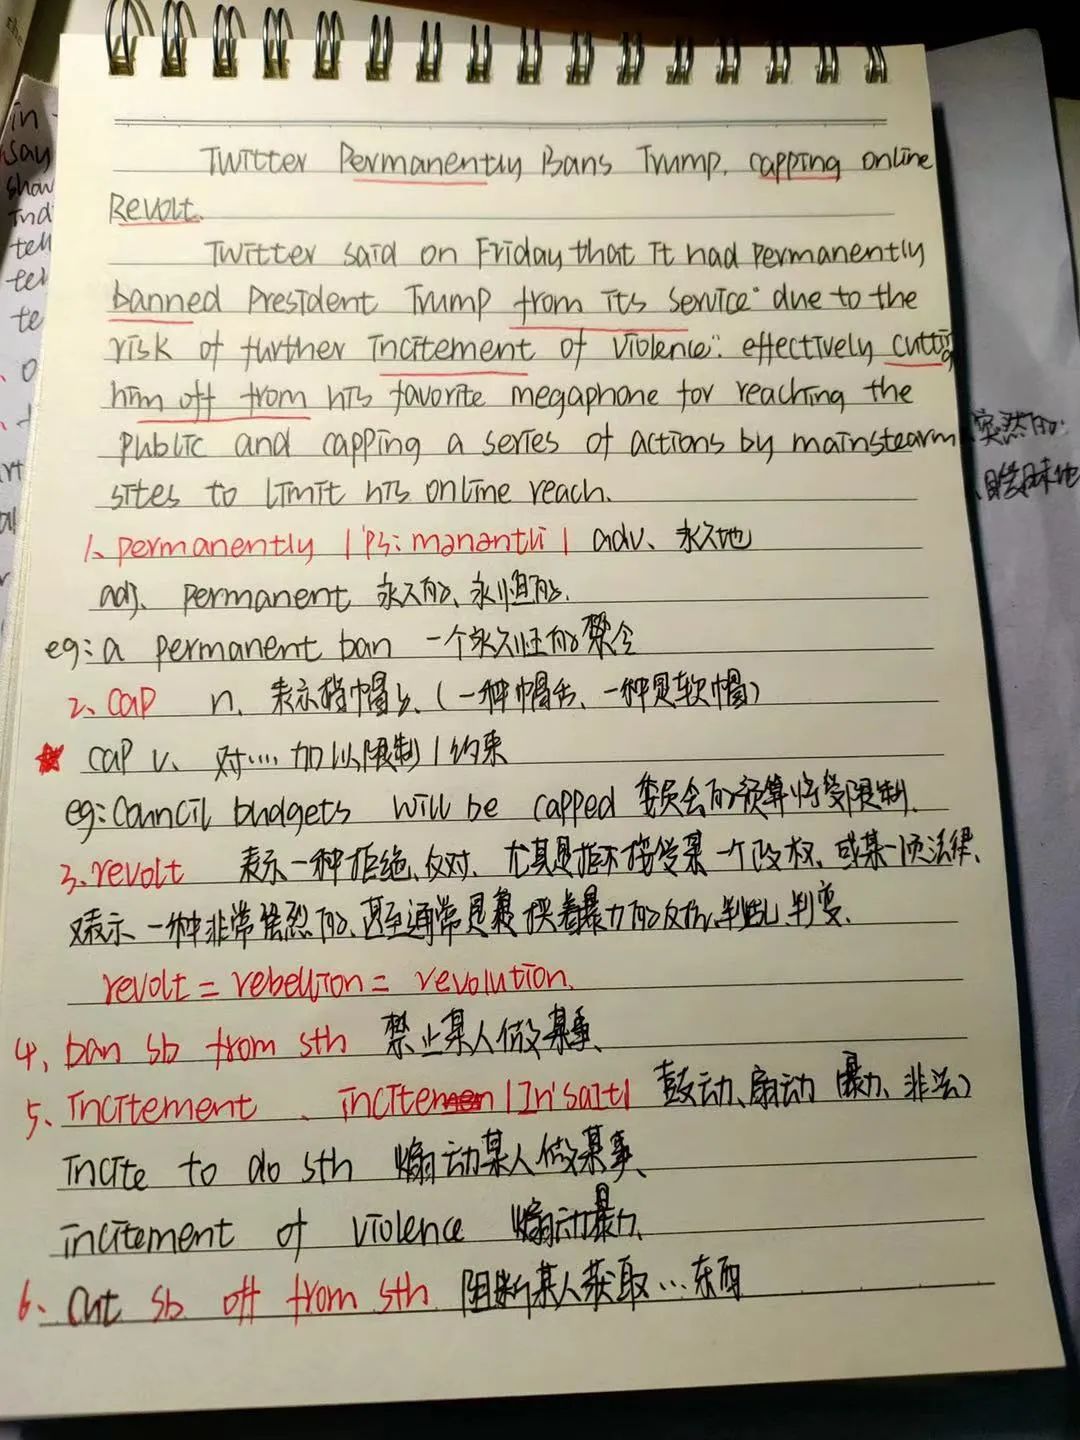 Twitter Permanently Bans Trump, capping online
Revolt.
Twitter said on Friday that it had permanently
banned President Trump from its service "due to the
risk of further incitement of violence". effectively cutting
him off from his favorite megaphone for reaching the
public and capping a series of actions by mainstearm
sites to limit his online reach.
1、permanently | 'pɜ: mənəntli | adv、永久地
adj. permanent 永久的、永恒的.
eg: a permanent ban 一个永久性的禁令
2、cap n. 表示档帽子、(一种帽舌、一种是软帽)
★ cap v、对…. 加以限制 / 约束
eg: Council budgets will be capped 委员会的预算将受限制.
3、revolt 表示一种拒绝、反对、尤其是拒不接受某一个政权、或某一项法律、
又表示一种非常强烈的、甚至通常是 挟着暴力的反抗、判乱、判变.
revolt = rebellion = revolution.
4、ban sb from sth 禁止某人做某事、
5、incitement 、incite |In'saIt| 鼓动、扇动 (暴力、非法)
incite to do sth 煽动某人做某事、
incitement of violence 煽动暴力、
6、cut sb off from sth 阻断某人获取…东西
in
say
show
ind
tell
tel
te
突然的